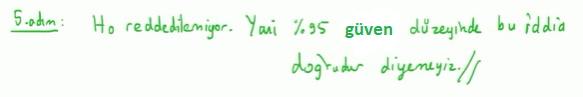 5.adım: Ho reddedilemiyor. Yani %95 güven düzeyinde bu iddia
doğrudur diyemeyiz.//